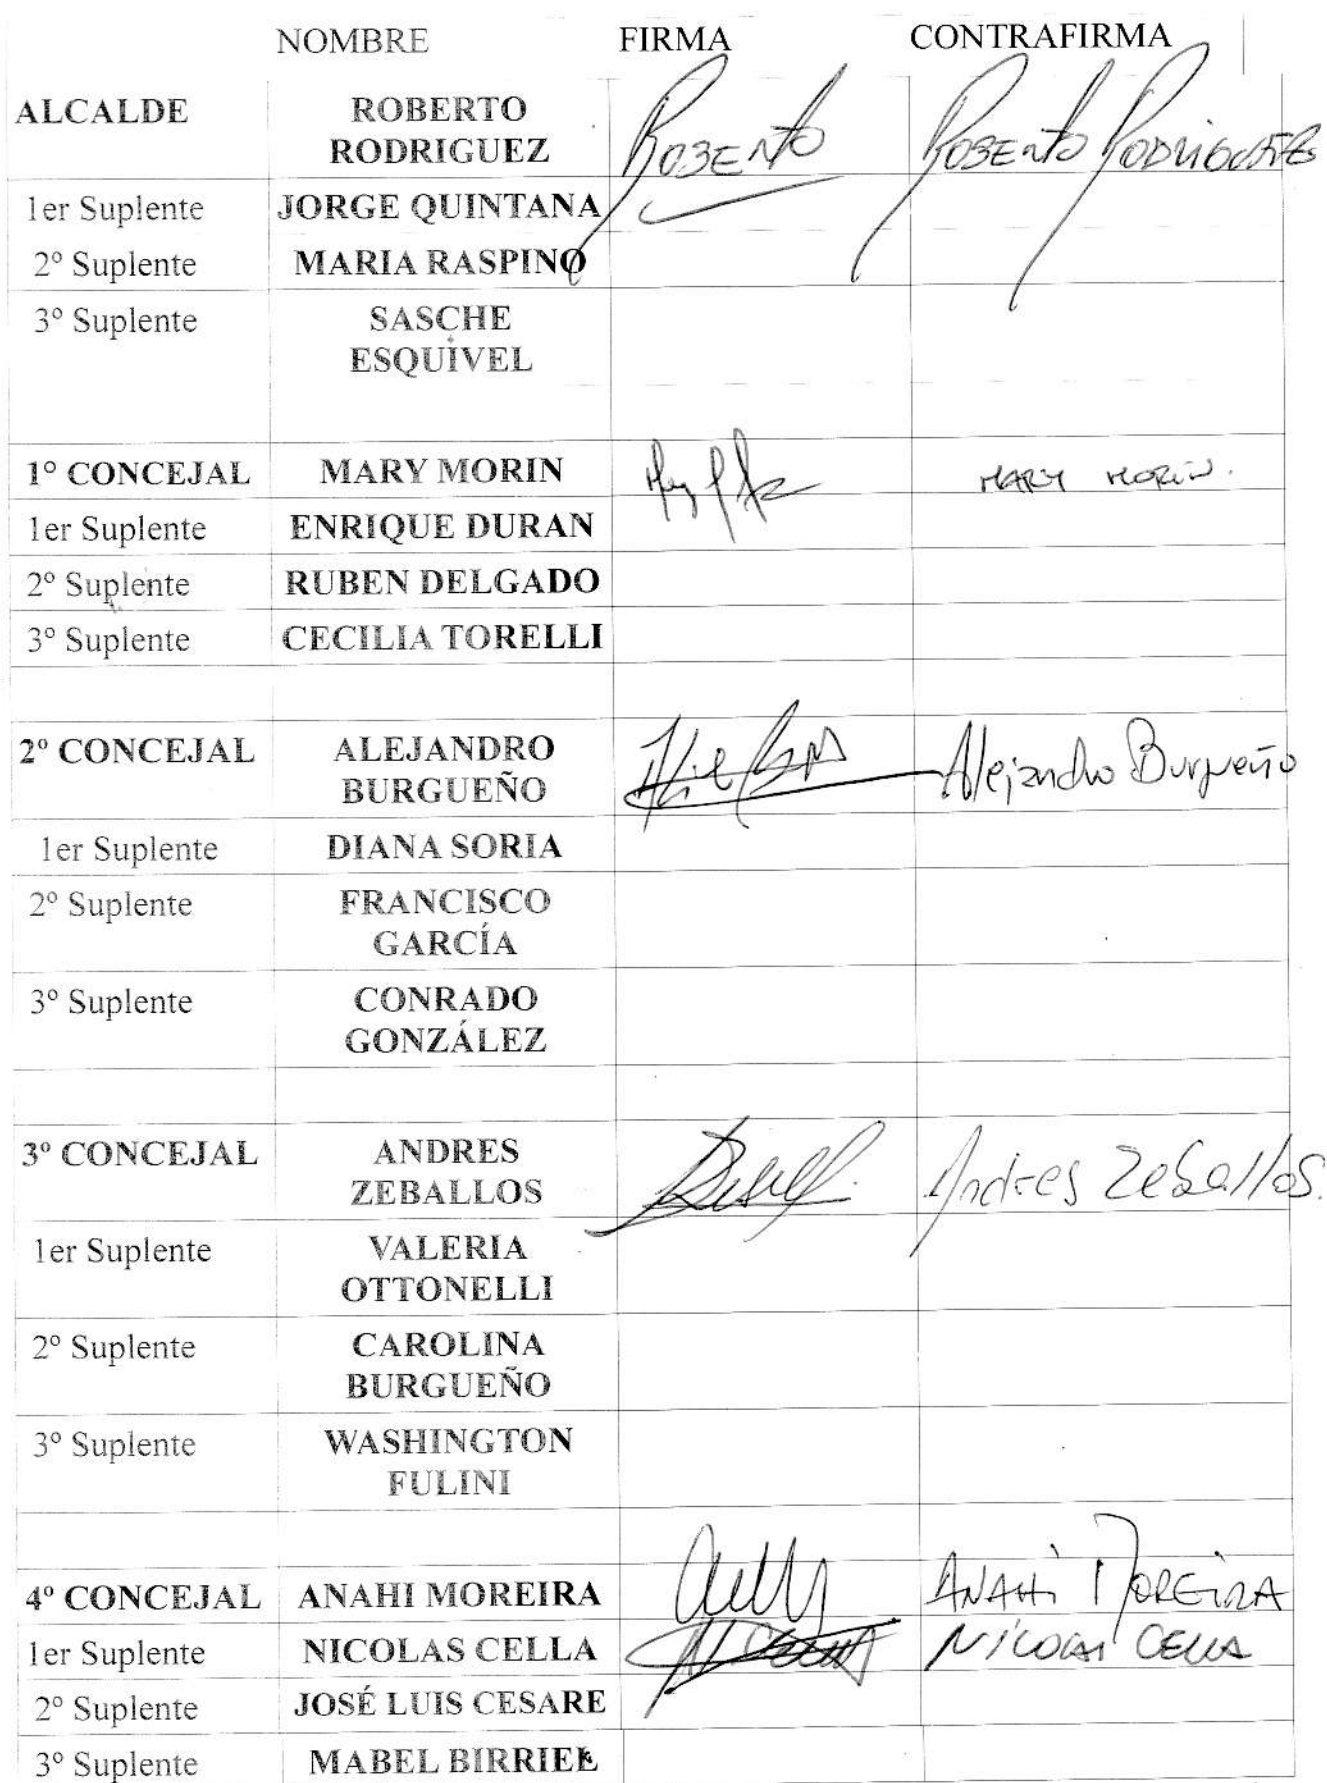 NOMBRE FIRMA CONTRAFIRMA
ALCALDE ROBERTO
RODRIGUEZ Roberto Roberto Rodriguez
1er Suplente JORGE QUINTANA
2º Suplente MARIA RASPINO
3º Suplente SASCHE
ESQUIVEL
1º CONCEJAL MARY MORIN MARY MORIN.
1er Suplente ENRIQUE DURAN
2º Suplente RUBEN DELGADO
3º Suplente CECILIA TORELLI
2º CONCEJAL ALEJANDRO
BURGUEÑO Alejandro Burgueño
1er Suplente DIANA SORIA
2º Suplente FRANCISCO
GARCÍA
3º Suplente CONRADO
GONZÁLEZ
3º CONCEJAL ANDRES
ZEBALLOS Andres Zeballos.
1er Suplente VALERIA
OTTONELLI
2º Suplente CAROLINA
BURGUEÑO
3º Suplente WASHINGTON
FULINI
4º CONCEJAL ANAHI MOREIRA ANAHI MOREIRA
1er Suplente NICOLAS CELLA NICOLAS CELLA
2º Suplente JOSÉ LUIS CESARE
3º Suplente MABEL BIRRIEL